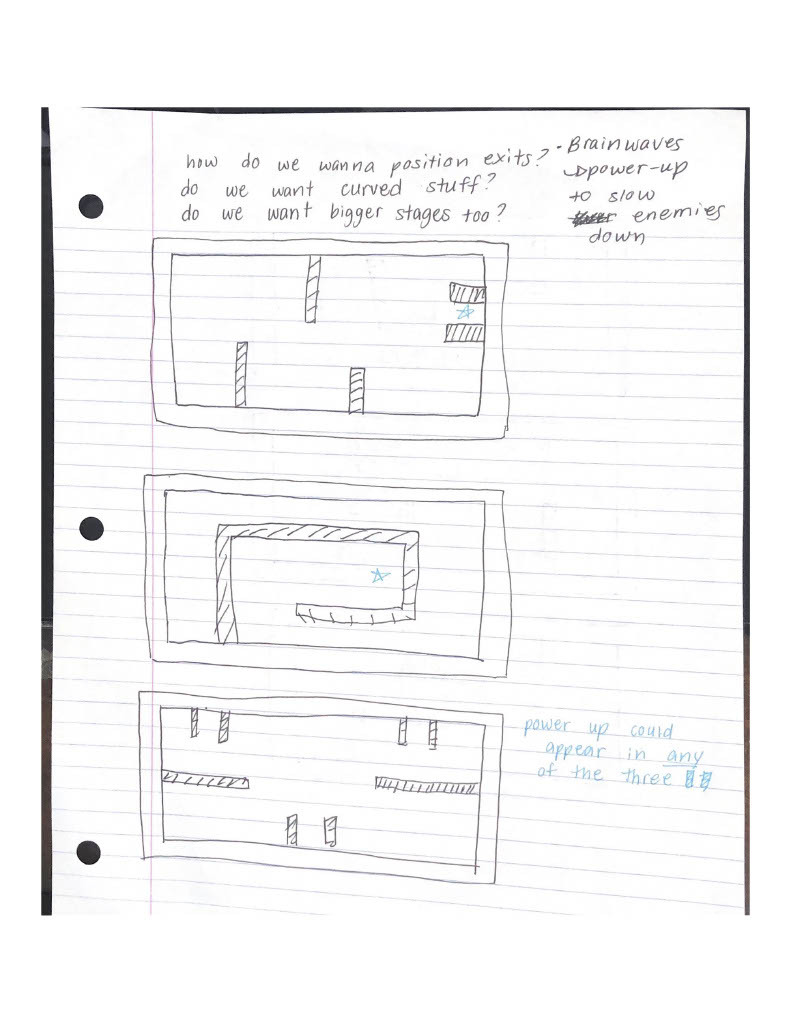 how do we wanna position exits?
do we want curved stuff?
do we want bigger stages too?
- Brainwaves
↳power-up
to slow
enemies
down
power up could
appear in any
of the three